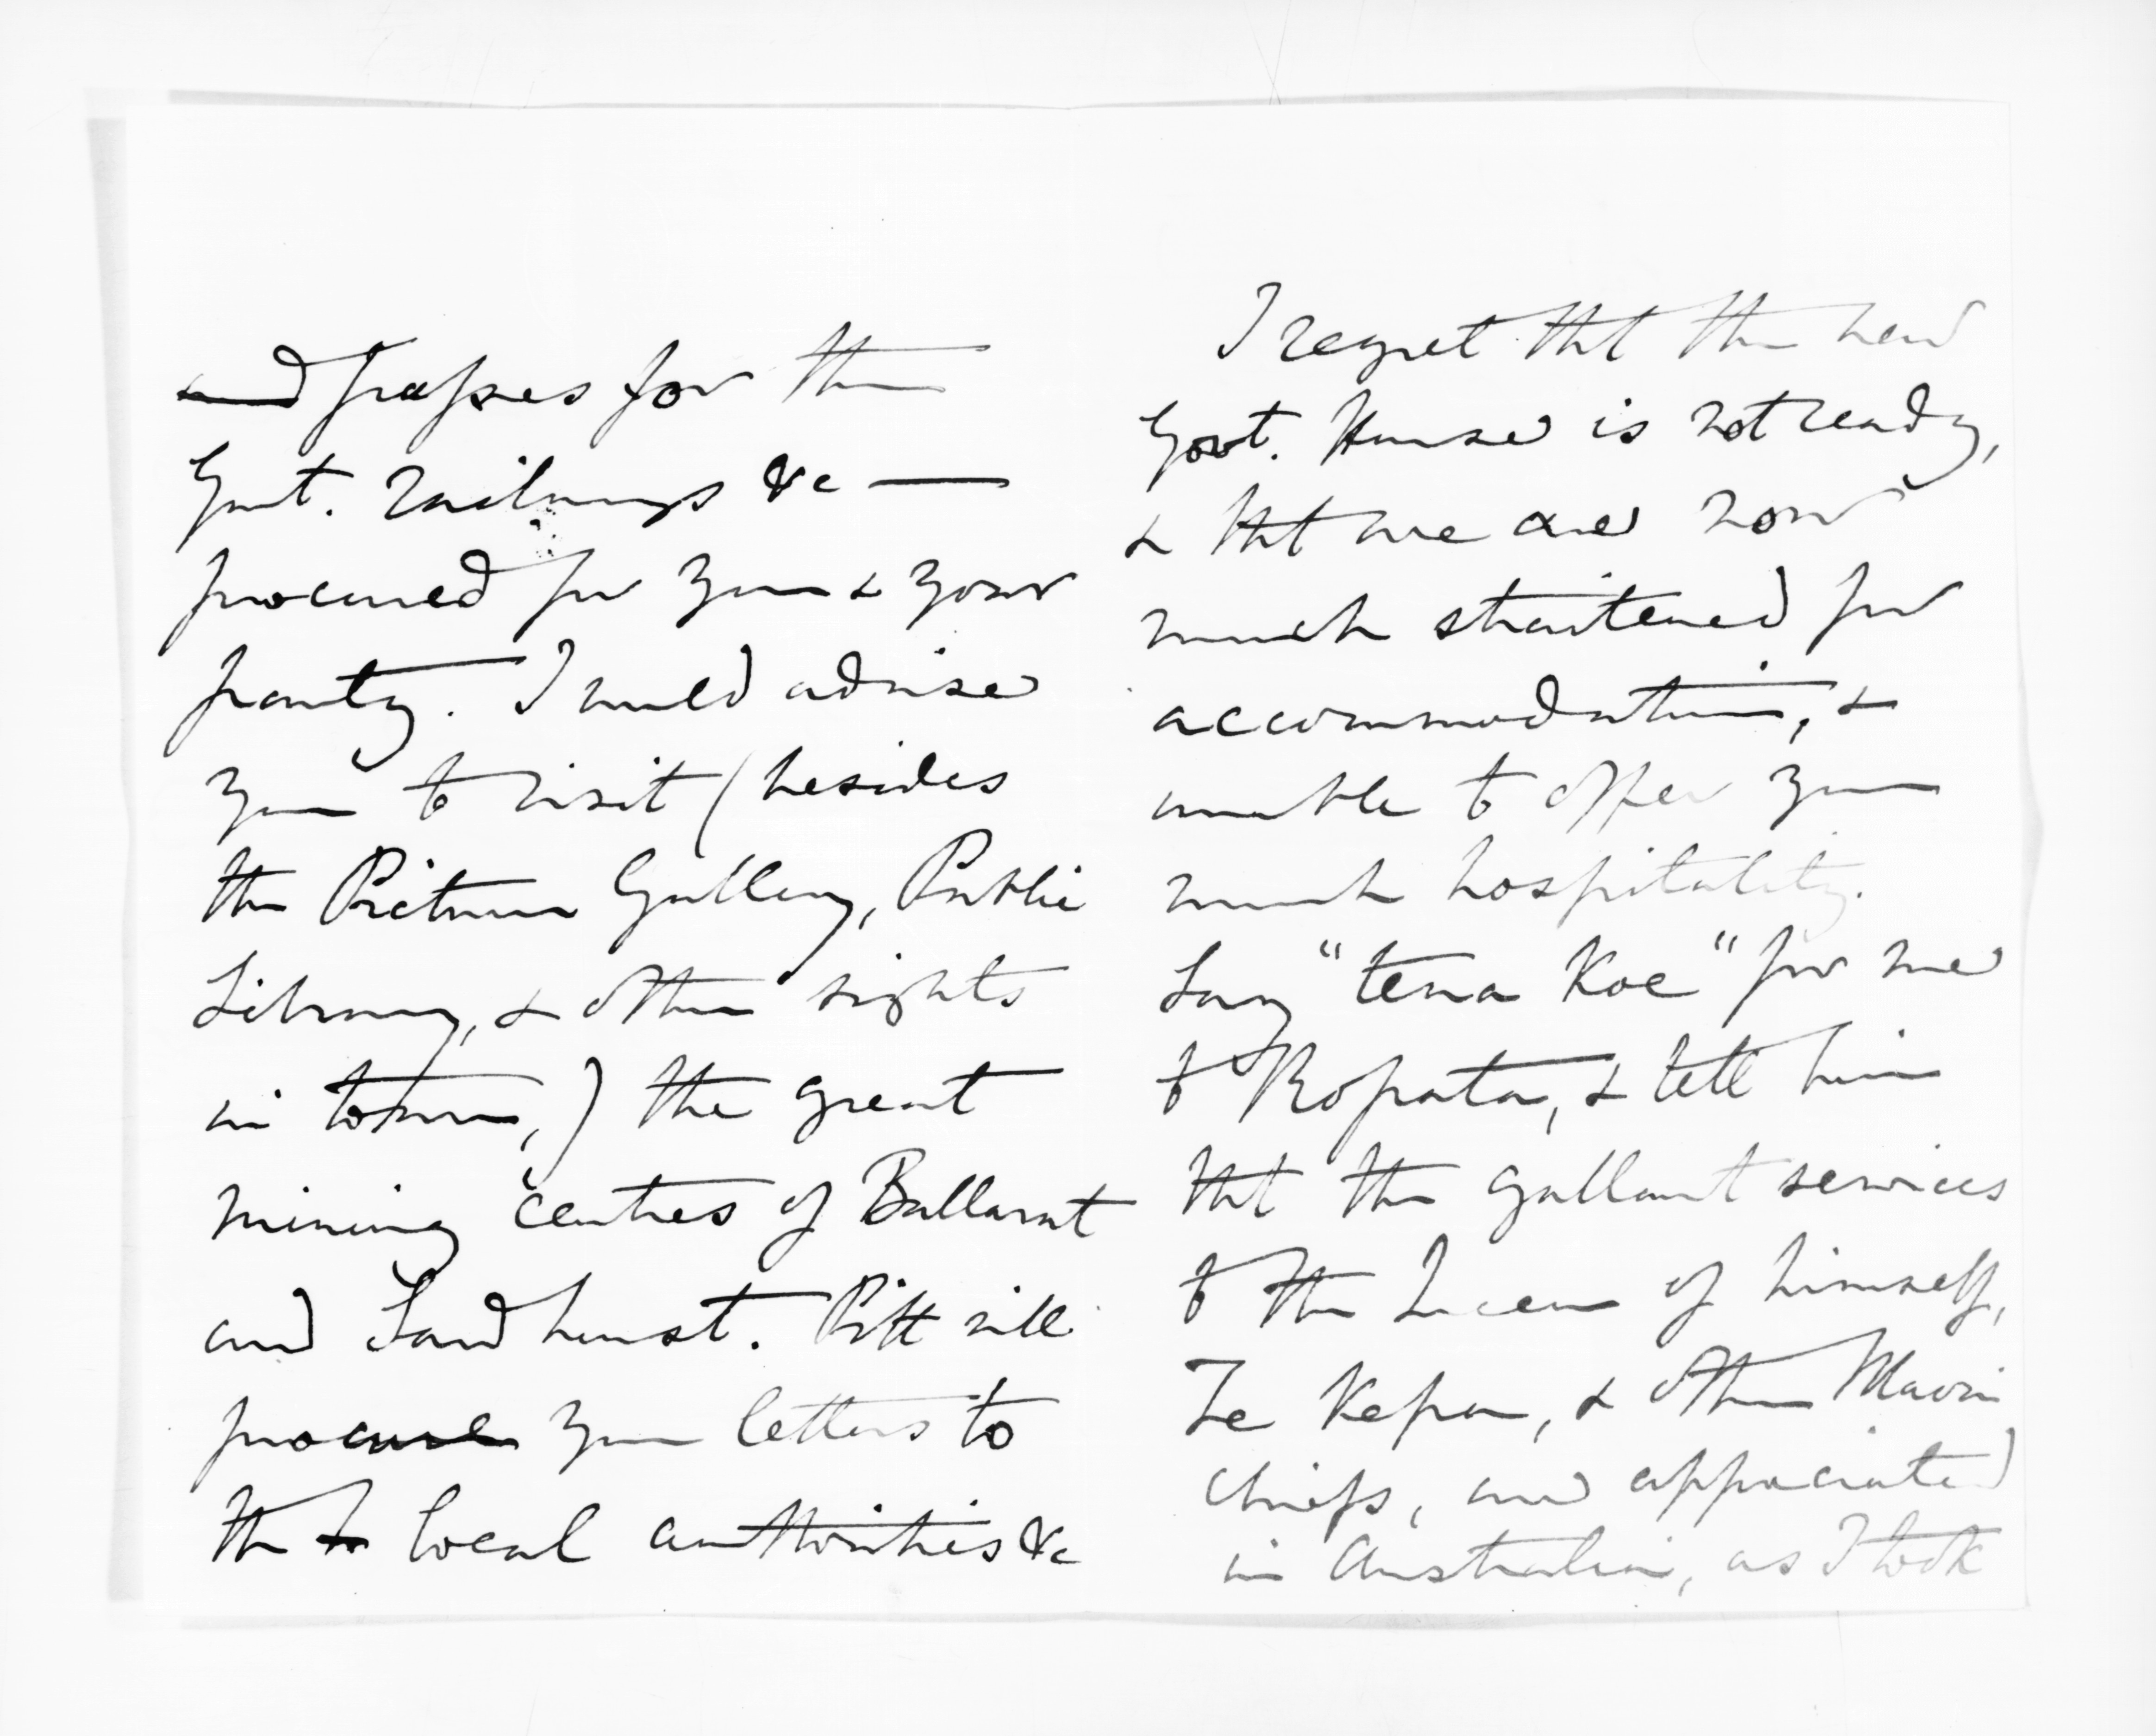 and passes for the
Govt. railways &c —
procured for you & your
party. I would advise
you to visit (besides
the Picture Gallery, Public
Library, & other sights
in town,) the great
mining centres of Ballarat
and Sandhurst. Pitt will
procure you letters to
the local authorities &c
I regret tht the new
Govt. House is not ready,
& tht we are now
much straitened for
accommodation, &
unable to offer you
much hospitality.
Say "tena Koe" for me
to Ropata, & tell him
tht the gallant services
to the Queen of himself,
Te Kepa, & other Maori
chiefs, are appreciated
in Australia, as I took